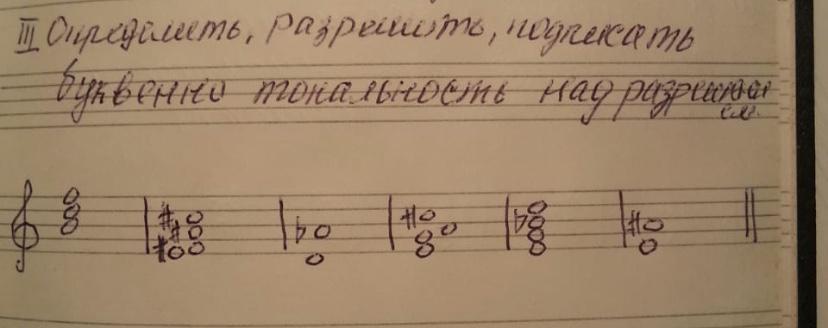 III Определить, разрешить, подписать
буквенно тональность над разрешени
ем.